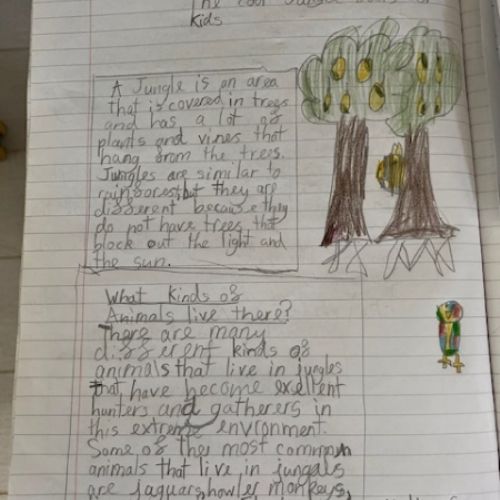 The cool Jungle
kids
A Jungle is an area
that is covered in tregs
and has a lot of
plants and vines that
hang from the trees.
Jungles are similar to
rainforest, but they are
different because they
do not have trees that
block out the light and
the sun.
What Kinds of
Animals live there?
There are many
different kinds of
animals that live in jungles
that have become exellent
hunters and gatherers in
this extreme envronment.
Some of thes most common
animals that live in jungals
are jaguars, howler monkeys,